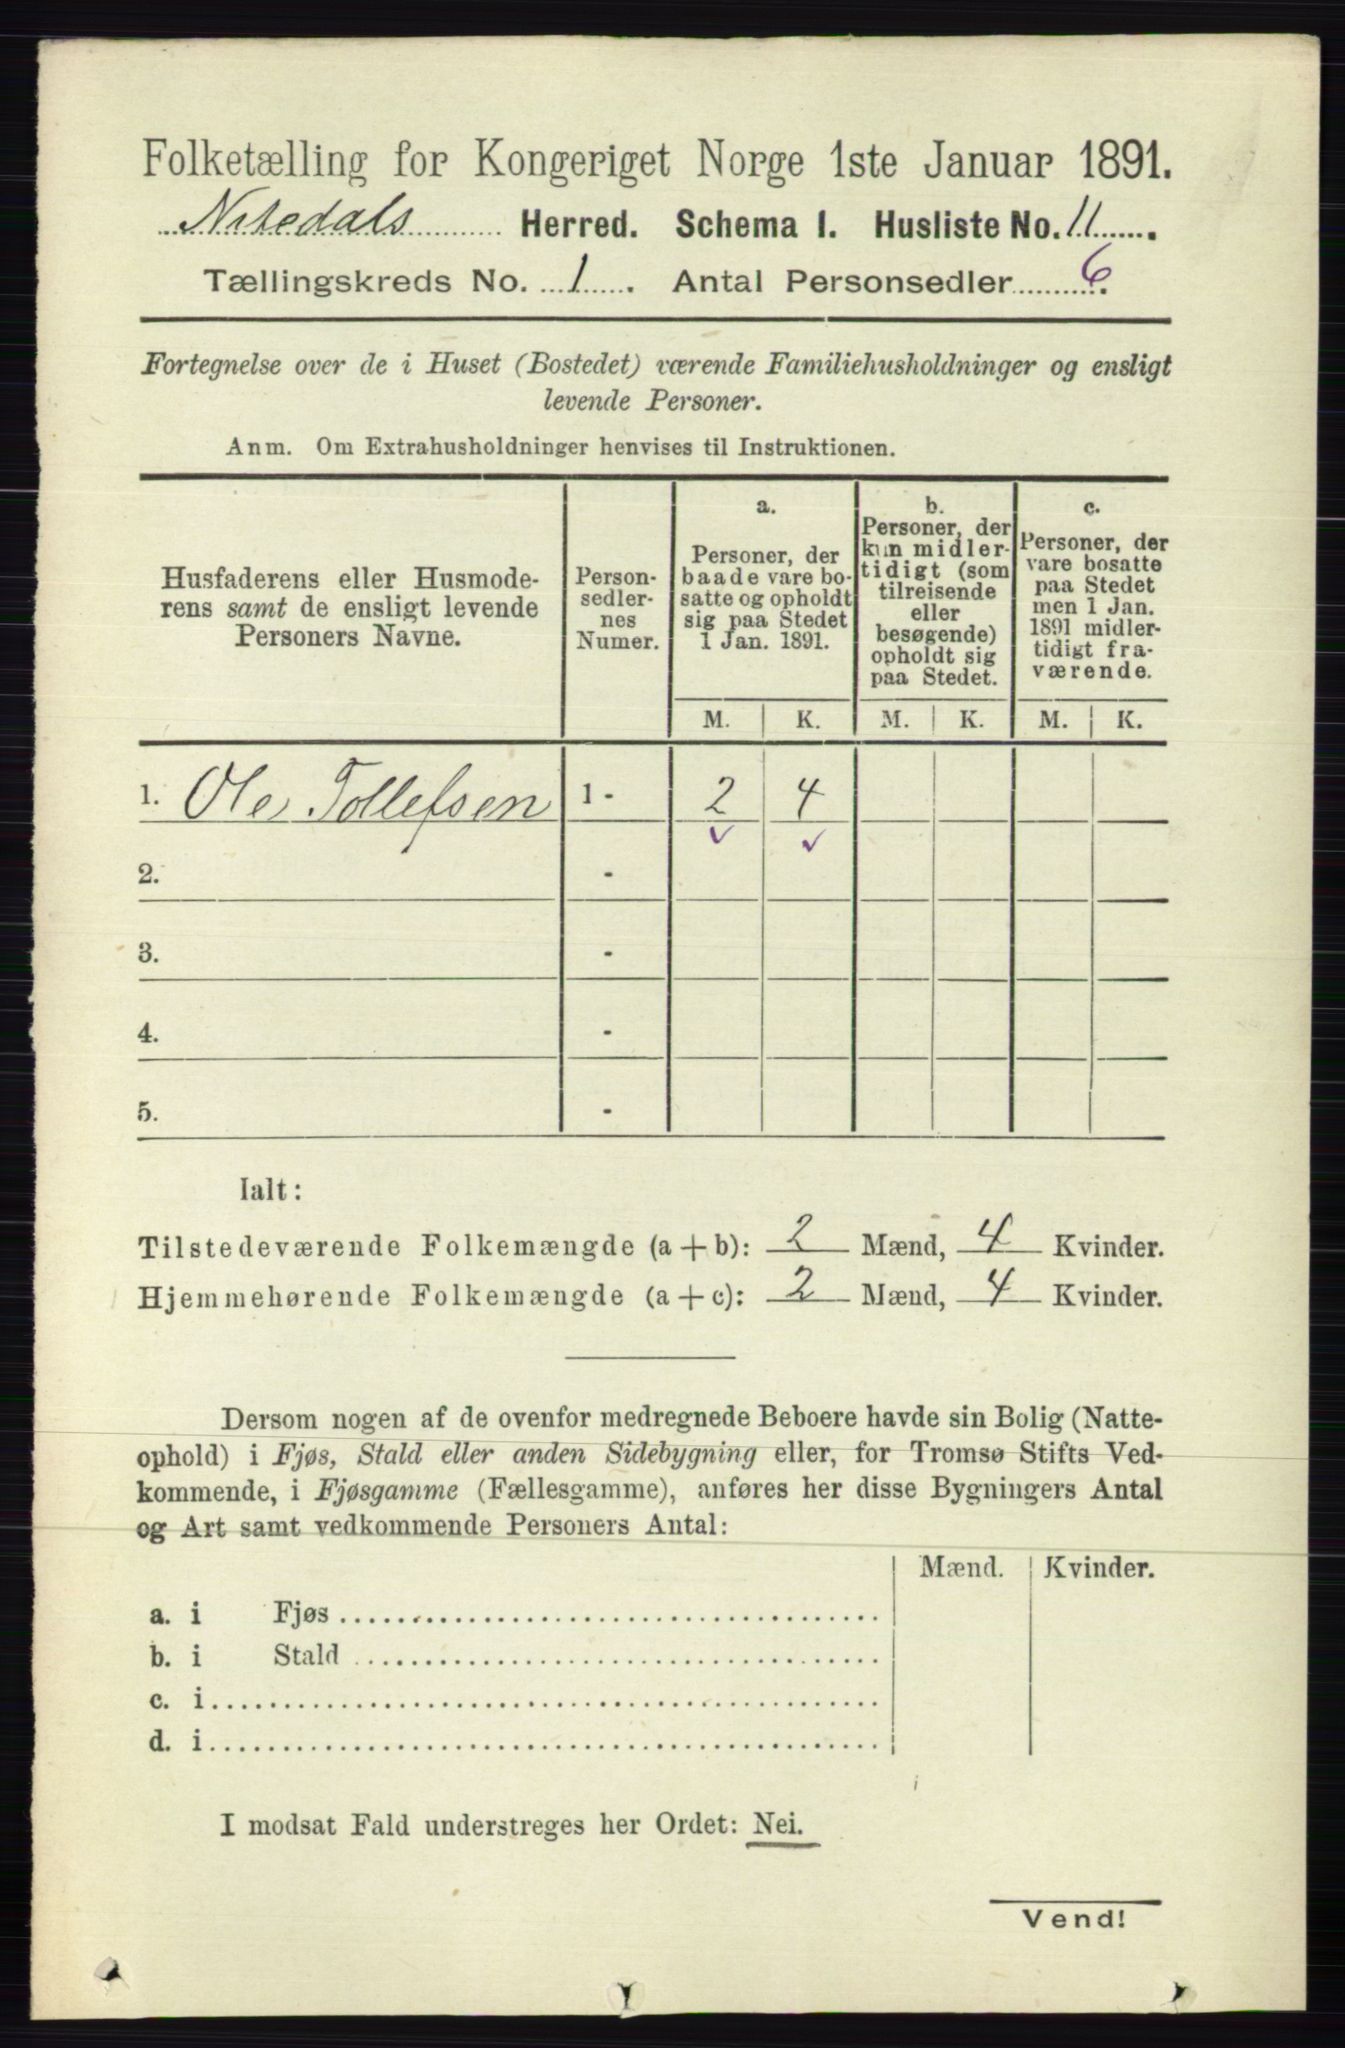 Folketælling for Kongeriget Norge 1ste Januar 1891.
Nitedals Herred. Schema I. Husliste No. 11.
Tællingskreds No. 1. Antal Personsedler 6.
Fortegnelse over de i Huset (Bostedet) værende Familiehusholdninger og ensligt
levende Personer.
Anm. Om Extrahusholdninger henvises til Instruktionen.
Husfaderens eller Husmode-
rens samt de ensligt levende
Personers Navne.
Person-
sedler-
nes
Numer.
a.
Personer, der
baade vare bo-
satte og opholdt
sig paa Stedet
1 Jan. 1891.
b.
Personer, der
kun midler-
tidigt (som
tilreisende
eller
besøgende)
opholdt sig
paa Stedet.
c.
Personer, der
vare bosatte
paa Stedet
men 1 Jan.
1891 midler-
tidigt fra-
værende.
M. K. M. K. M. K.
1. Ole Tollefsen 1 - 2 4
2. -
3. -
4. -
5. -
Ialt:
Tilstedeværende Folkemængde (a + b): 2 Mænd, 4 Kvinder.
Hjemmehørende Folkemængde (a + c): 2 Mænd, 4 Kvinder.
Dersom nogen af de ovenfor medregnede Beboere havde sin Bolig (Natte-
ophold) i Fjøs, Stald eller anden Sidebygning eller, for Tromsø Stifts Ved-
kommende, i Fjøsgamme (Fællesgamme), anføres her disse Bygningers Antal
og Art samt vedkommende Personers Antal:
Mænd. Kvinder.
a. i Fjøs
b. i Stald
c. i
d. i
I modsat Fald understreges her Ordet: Nei.
Vend!